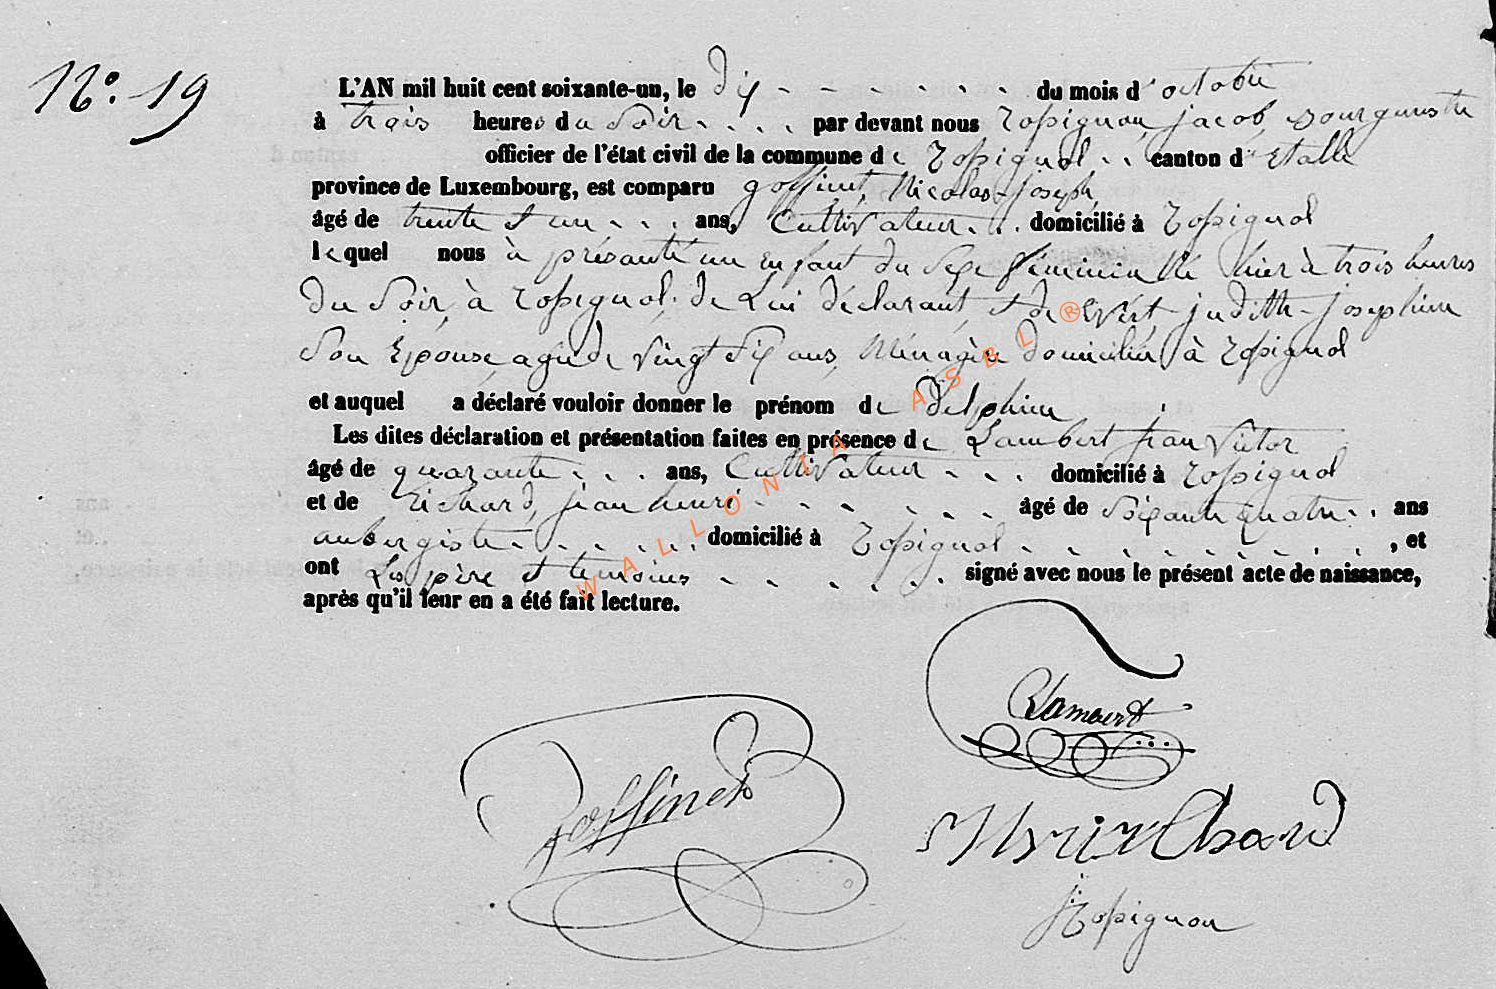 N° 19
L'AN mil huit cent soixante-un, le dix - - - - - - - du mois d'octobre
à trois heures du Soir - - - - par devant nous Rossignon, jacob, Bourgmestre
officier de l'état civil de la commune de Rossignol - - canton d'Etalle
province de Luxembourg, est comparu goffinet, Nicolas-joseph,
âgé de trente et un - - - - ans, Cultivateur - - - domicilié à Rossignol
lequel nous à présenté un enfant du Sexe féminin Né hier à trois heures
du Soir, à Rossignol, de Lui déclarant, et de judith-josephine
Son Epouse, agée de Vingt Six ans, Ménagère domiciliée à Rossignol
et auquel a déclaré vouloir donner le prénom de delphine
Les dites déclaration et présentation faites en présence de Lambert jean Victor
âgé de quarante - - - ans, Cultivateur - - - domicilié à Rossignol
et de Richard, jean henri - - - - - - - âgé de Soixante quatre - - ans
aubergiste - - - - - - domicilié à Rossignol - - - - - - - - - - - , et
ont Les père et temoins - - - - - - signé avec nous le présent acte de naissance,
après qu'il leur en a été fait lecture.
® WALLONIA ASBL
Lambert
Goffinet
Rossignon